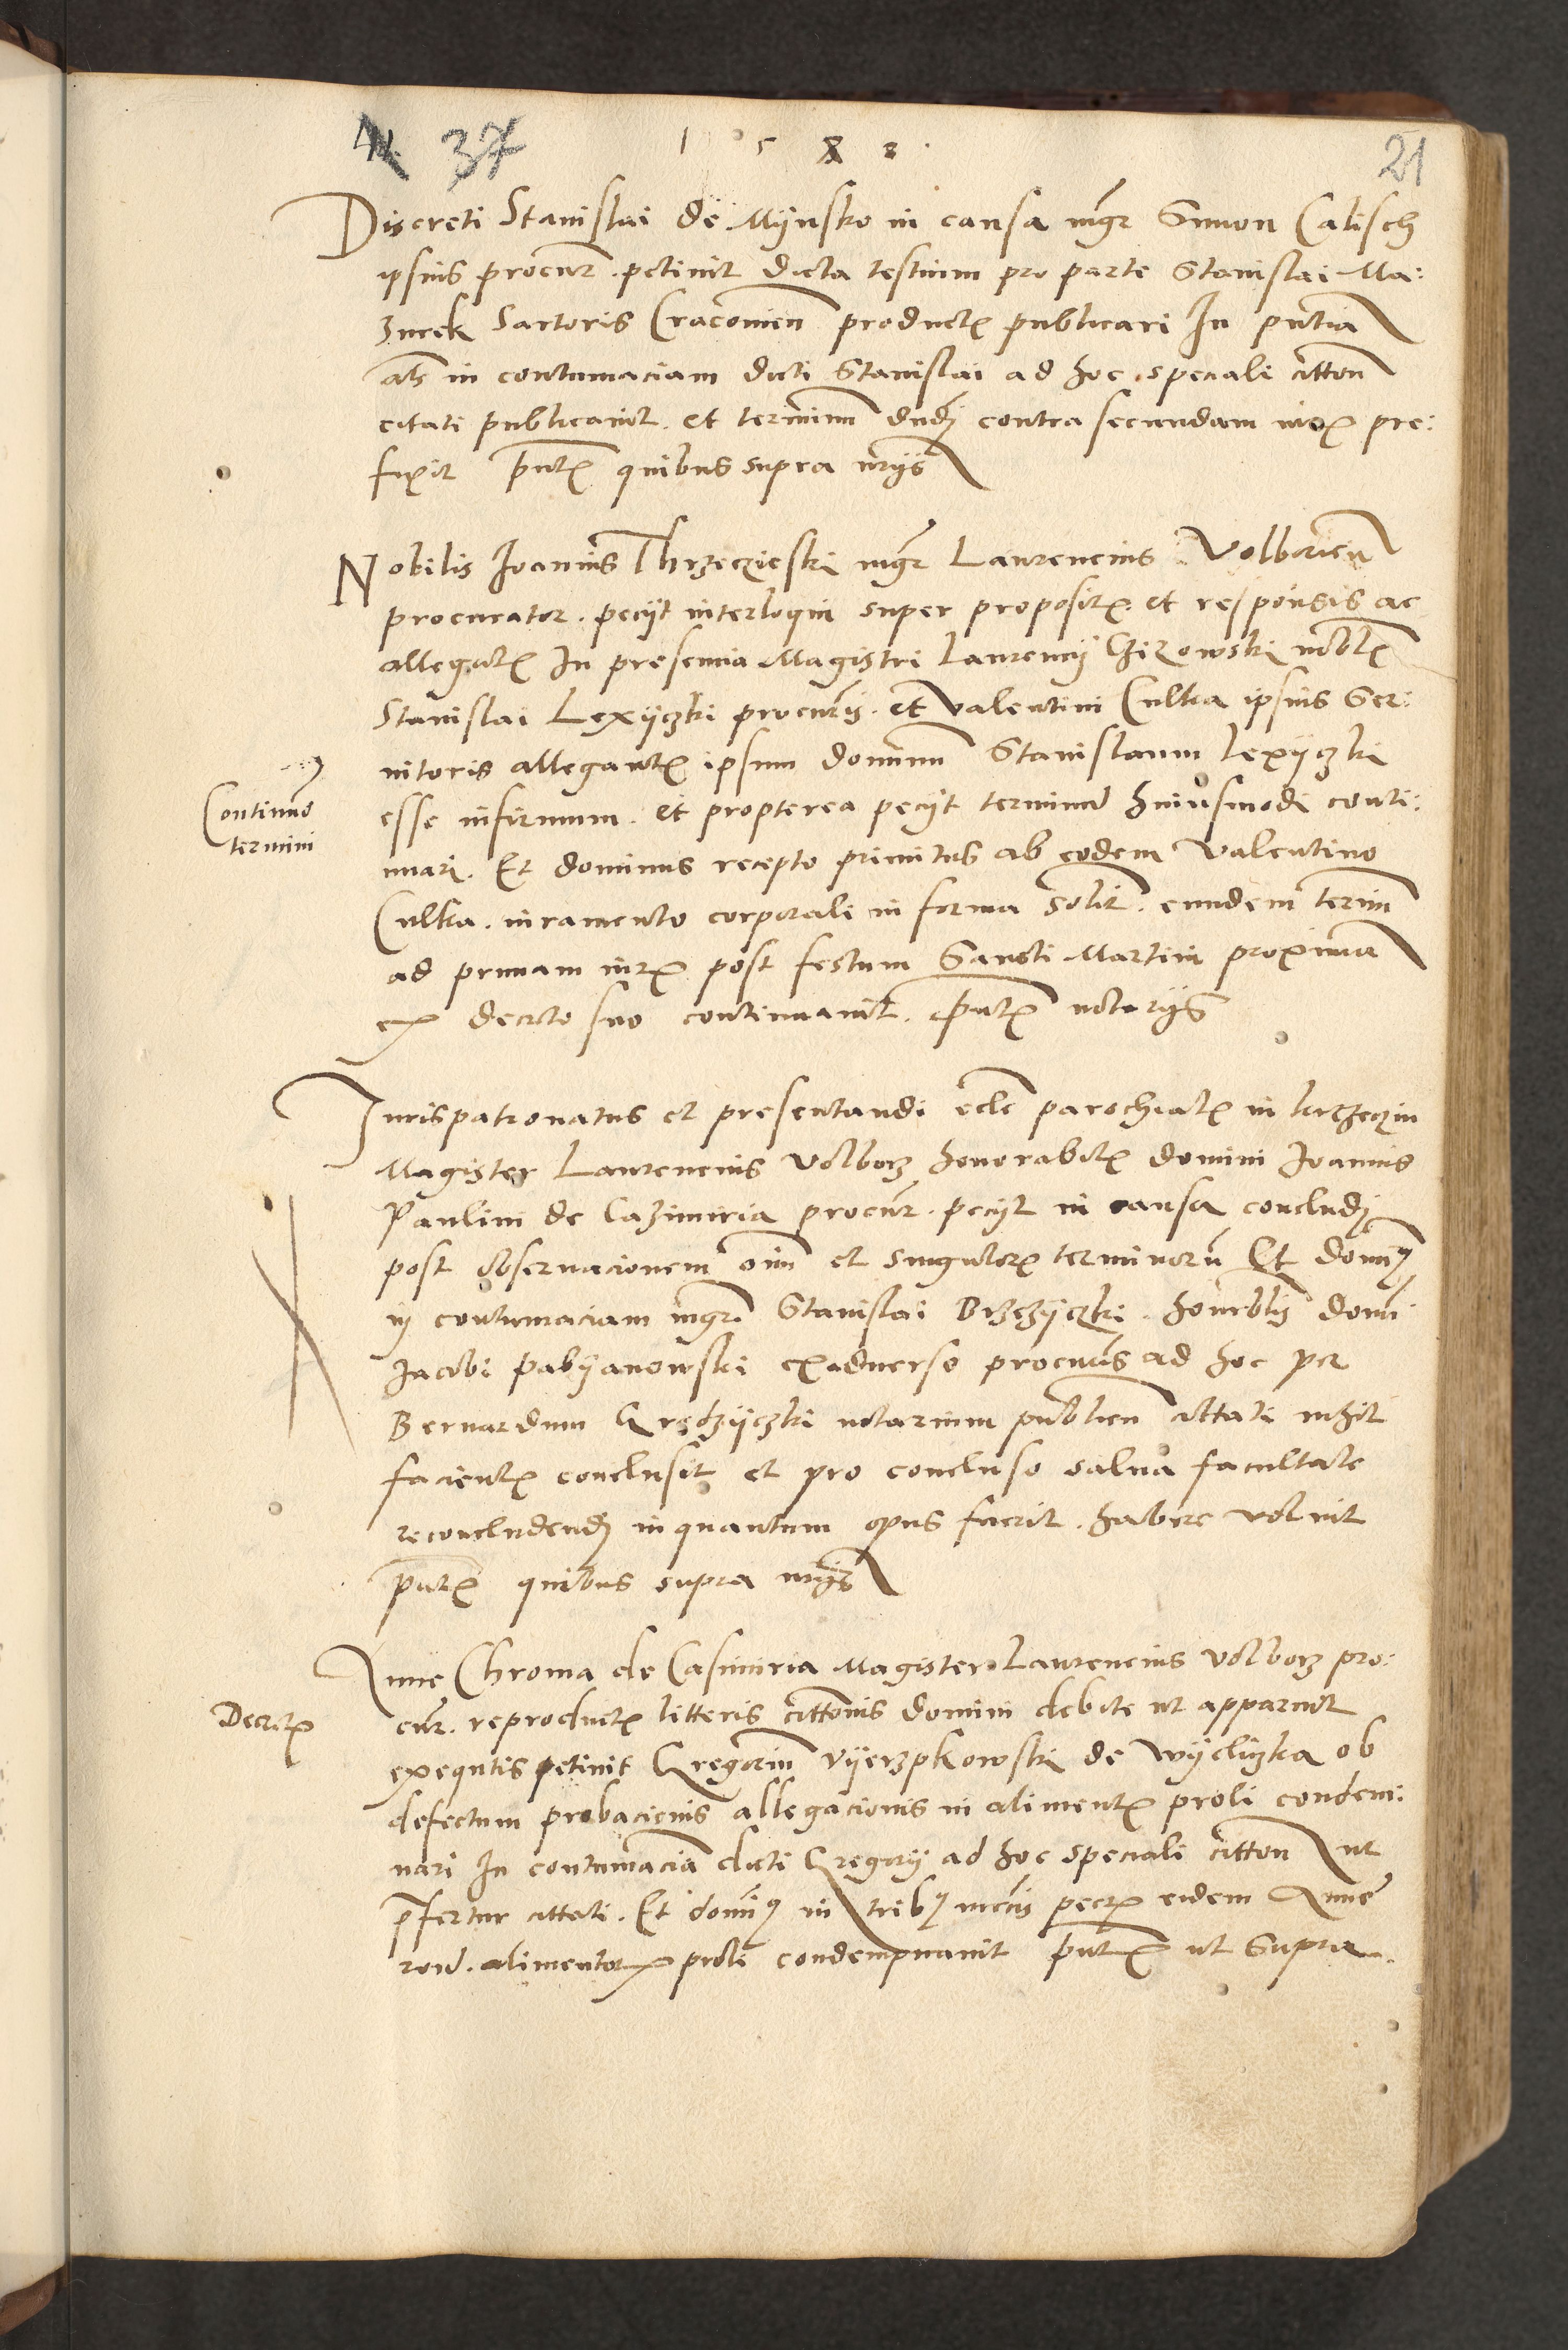 37
1 5 8 8.
21
Discreti Stanislai de Mÿnsko in causa mgr Simon Calisch
ipsius procur. petiuit dicta testium pro parte Stanislai Ma:
zurek Sartoris Cracouien productꝭ publicari In pntia
in contumaciam dicti Stanislai ad hoc speciali citton
citati publicauit. et terminum dndj contra secundam iurꝭ pre:
fixit pntꝭ quibus supra
Nobilis Joannis Thrzeczieski mgr Laurencius Volborien
procurator. peciit interloqui super propositꝭ et responsis ac
allegatꝭ In presencia Magistri Laurencij Czizowski nobilꝭ
Stanislai Lexÿczki procuris. et Valentini Culka ipsius Ser:
uitoris allegantꝭ ipsum dominum Stanislaum Lexÿczki
esse infirmum. et propterea peciit terminum huiusmodi conti:
nuari. Et dominus recepto primitus ab eodem Valentino
Culka. iuramento corporali in forma solit. eundem termin
ad primam iurꝭ post festum Sancti Martini proximam
ex decreto suo continuauit. pntꝭ notarijs
Continuo
termini
Jurispatronatus et presentandi ecle parochialꝭ in
Magister Laurencius Volborz honorabilꝭ domini Joannis
Paulini de Cazimiria procur. peciit in causa concludj
post obseruacionem oim et singulorꝭ terminorum Et domꝰ
in contumaciam mgr Stanislai Brzezÿczki. honrblis domi
Jacobi Pabÿanowski exaduerso procuris ad hoc per
Bernardum Grodzÿczki notarium publicu cittati nihil
facientꝭ conclusit et pro concluso salua facultate
reconcludendj inquantum opus fuerit. habere voluit
pntꝭ quibus supra
Anne Chroma de Casimiria Magister Laurencius Volborz pro:
cur. reproductꝭ litteris cittonis domini debite ut apparuit
exequtis petiuit Gregorium Vÿerzpkowski de Wÿeliczka ob
defectum probacionis allegacionis in alimentꝭ proli condem:
nari In contumacia dicti Gregorij ad hoc speciali citton ut
prefertur cittati. Et domiꝰ in tribꝰ mrcis pecꝭ eidem Anne
rone. alimentorꝭ proli condempnauit pntꝭ ut supra.
Decretꝭ